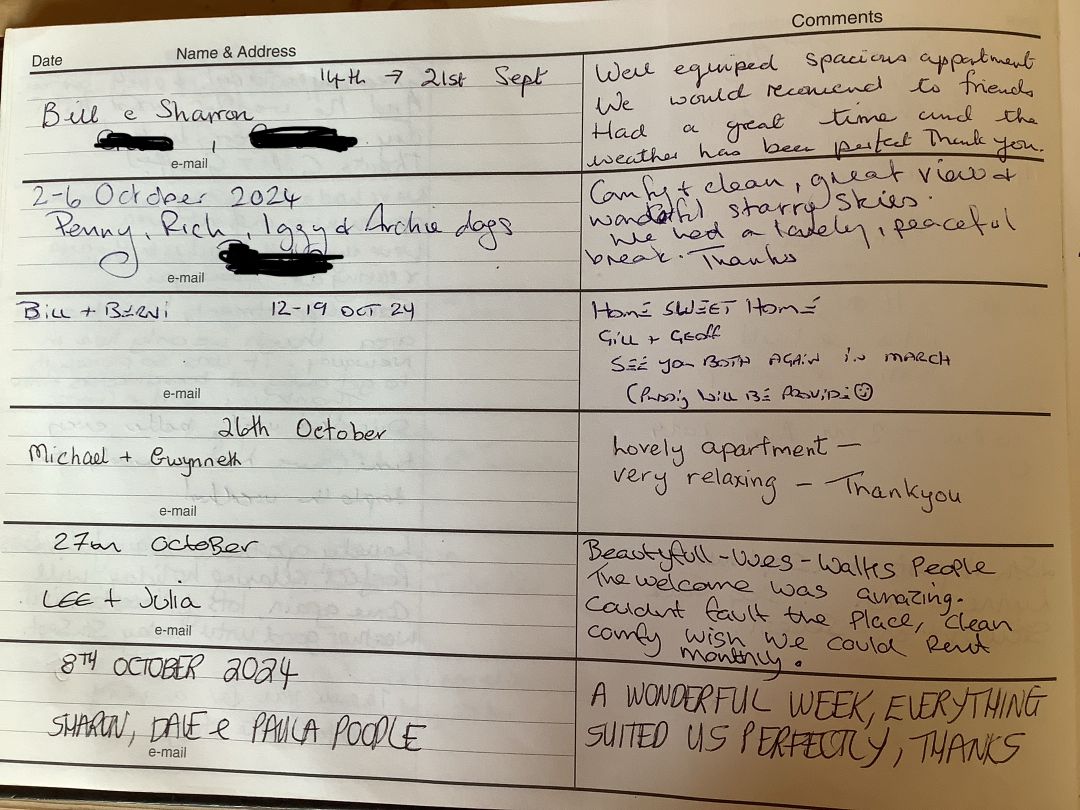 Comments
Date Name & Address
14th → 21st Sept
Bill & Sharron
e-mail
Well equiped spacious appartment
We would recomend to friends
Had a great time and the
weather has been perfect Thank you.
2-6 October 2024
Penny, Rich, Iggy & Archie dogs
e-mail
Comfy + clean, great view &
wonderful starry skies.
We had a lovely, peaceful
break. Thanks
Bill + Berni 12-19 OCT 24
e-mail
Home SWEET Home
Gill + Geoff
SEE you BOTH AGAIN iN MARCH
WiLL BE
26th October
Michael + Gwynneth
e-mail
Lovely apartment —
very relaxing — Thankyou
27th OctoBer
LEE + Julia
e-mail
Beautyfull - Vves - Walks People
The welcome was amazing.
Couldnt fault the place, clean
comfy wish we could Rent
monthly.
8TH OCTOBER 2024
SHARON, DALE & PAULA POODLE
e-mail
A WONDERFUL WEEK, EVERYTHING
SUITED US PERFECTLY, THANKS